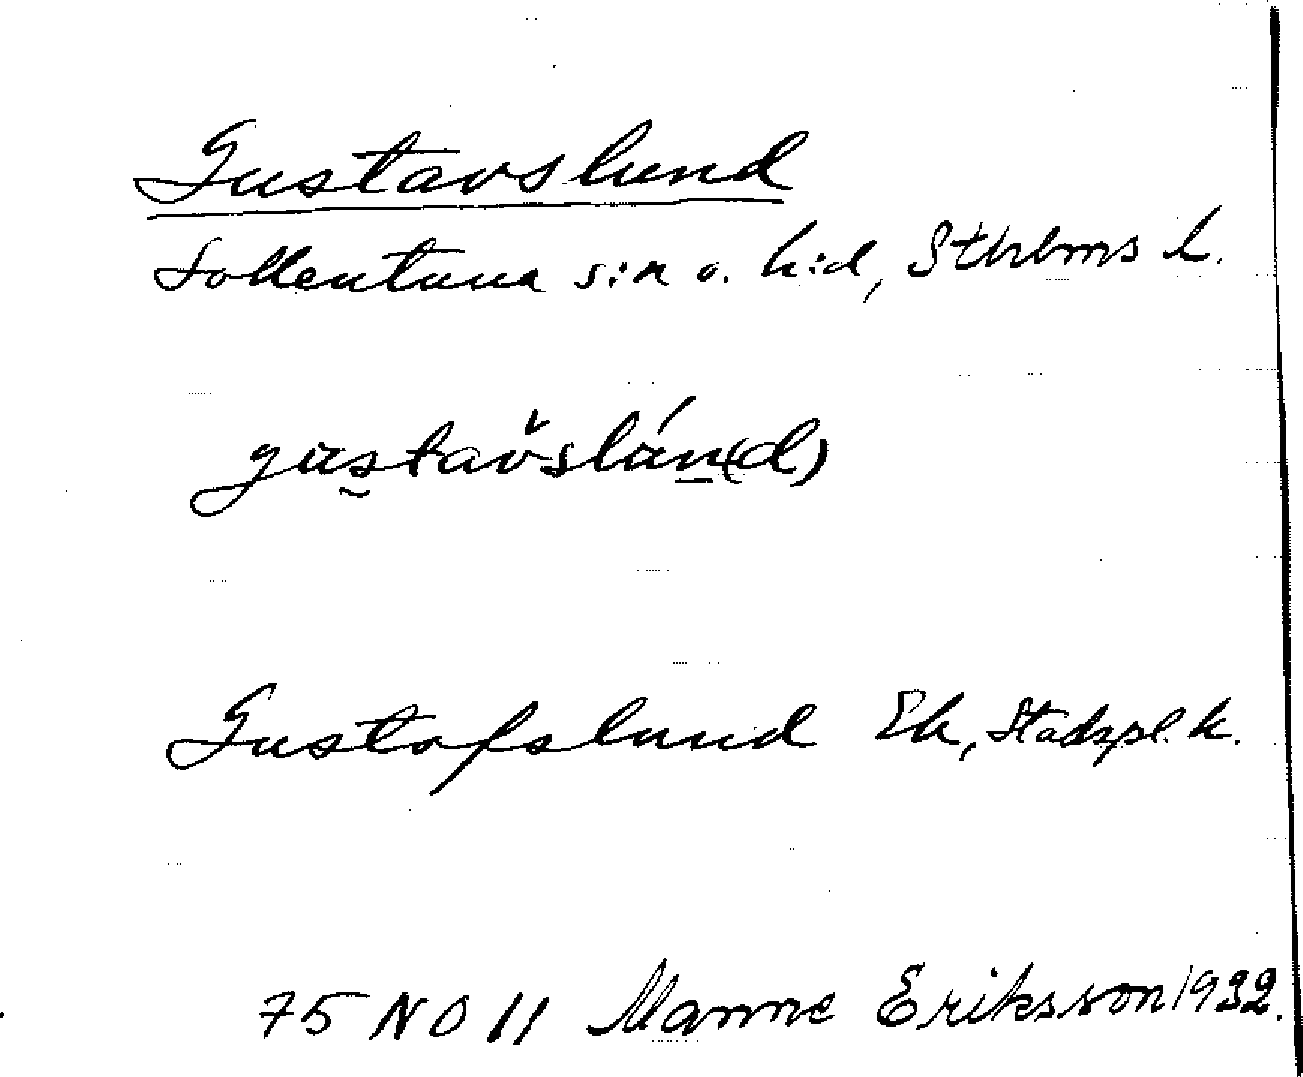 Gustavslund
Sollentuna s:n o. h:d, Sthlms l.
gustavslun(d)
Gustafslund Ek, Stadspl. k.
75 NO 11 Manne Eriksson 1932.